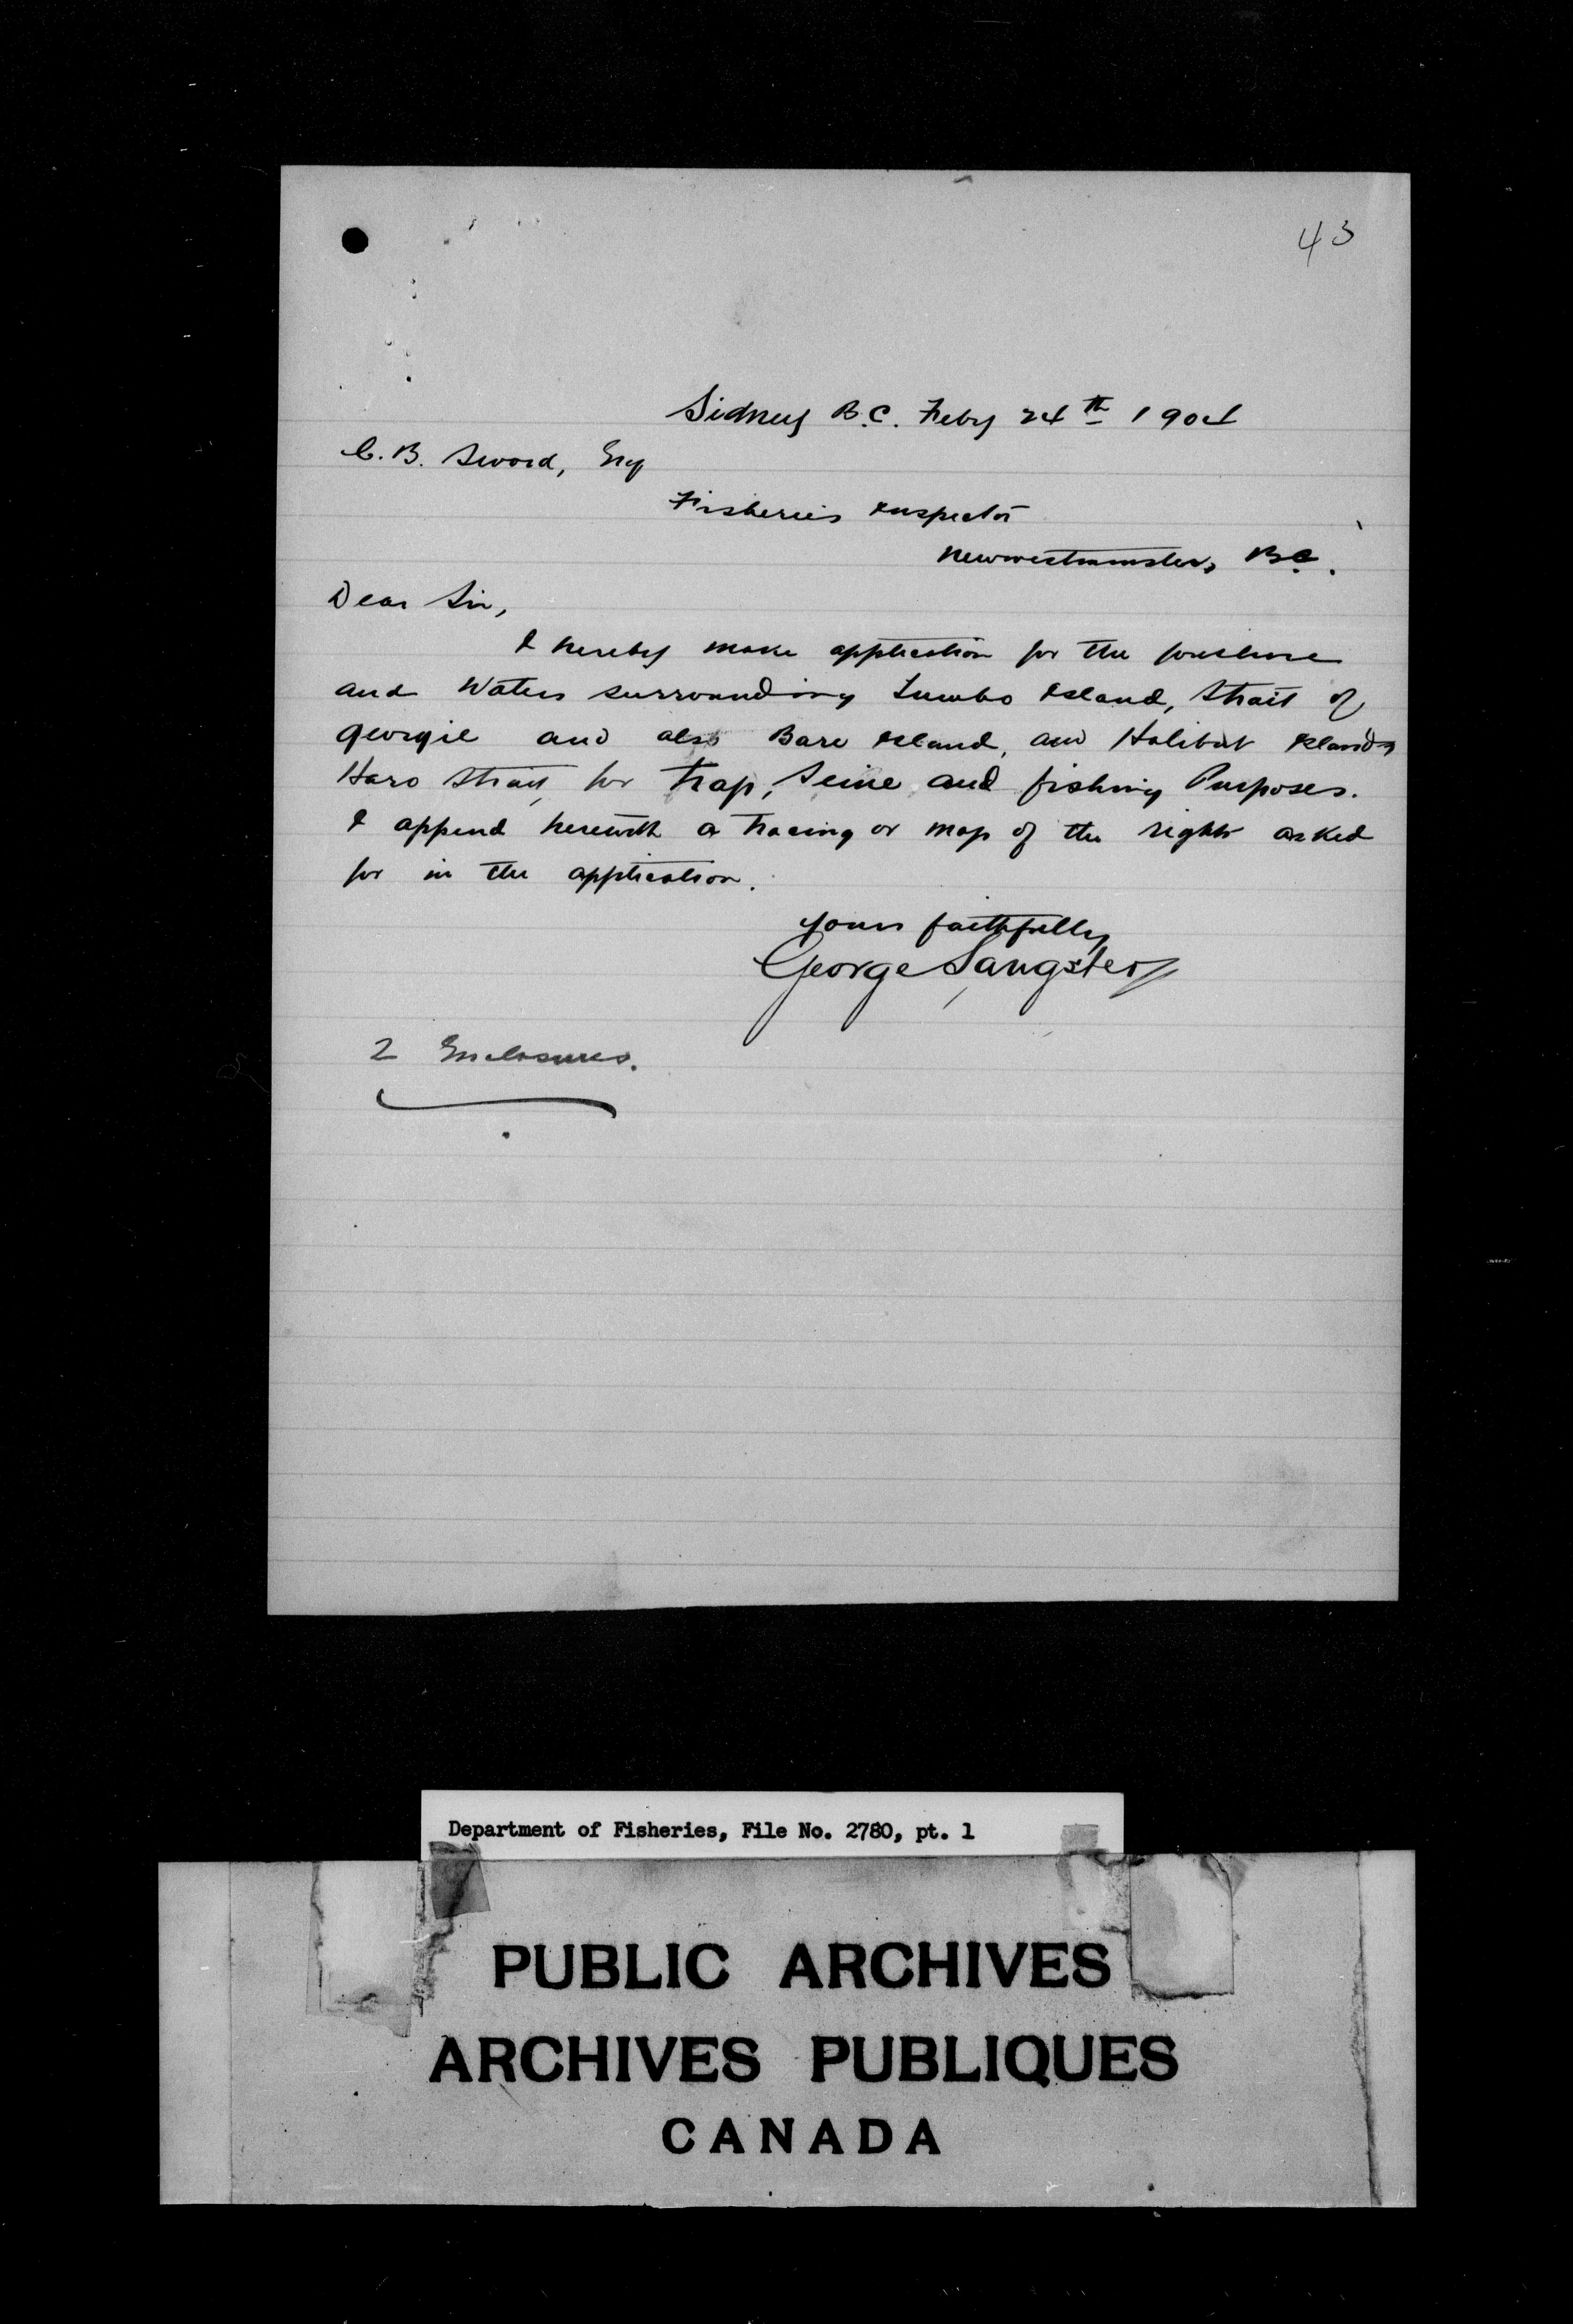 43
Sidney B.C. Feby 24th 1904
C. B. Sword, Esq
Fisheries Inspector
Newwestminster, B.C.
Dear Sir,
I hereby make application for the foreshore
and Waters surrounding Tumbo Island, Strait of
Georgie and also Bare Island, and Halibut Islands
Haro Strait, for Trap, Seine and fishing Purposes.
I append herewith a tracing or map of the rights asked
for in the application.
Yours faithfully
George Sangster
2 Enclosures.
Department of Fisheries, File No. 2780, pt. 1
PUBLIC ARCHIVES
ARCHIVES PUBLIQUES
CANADA